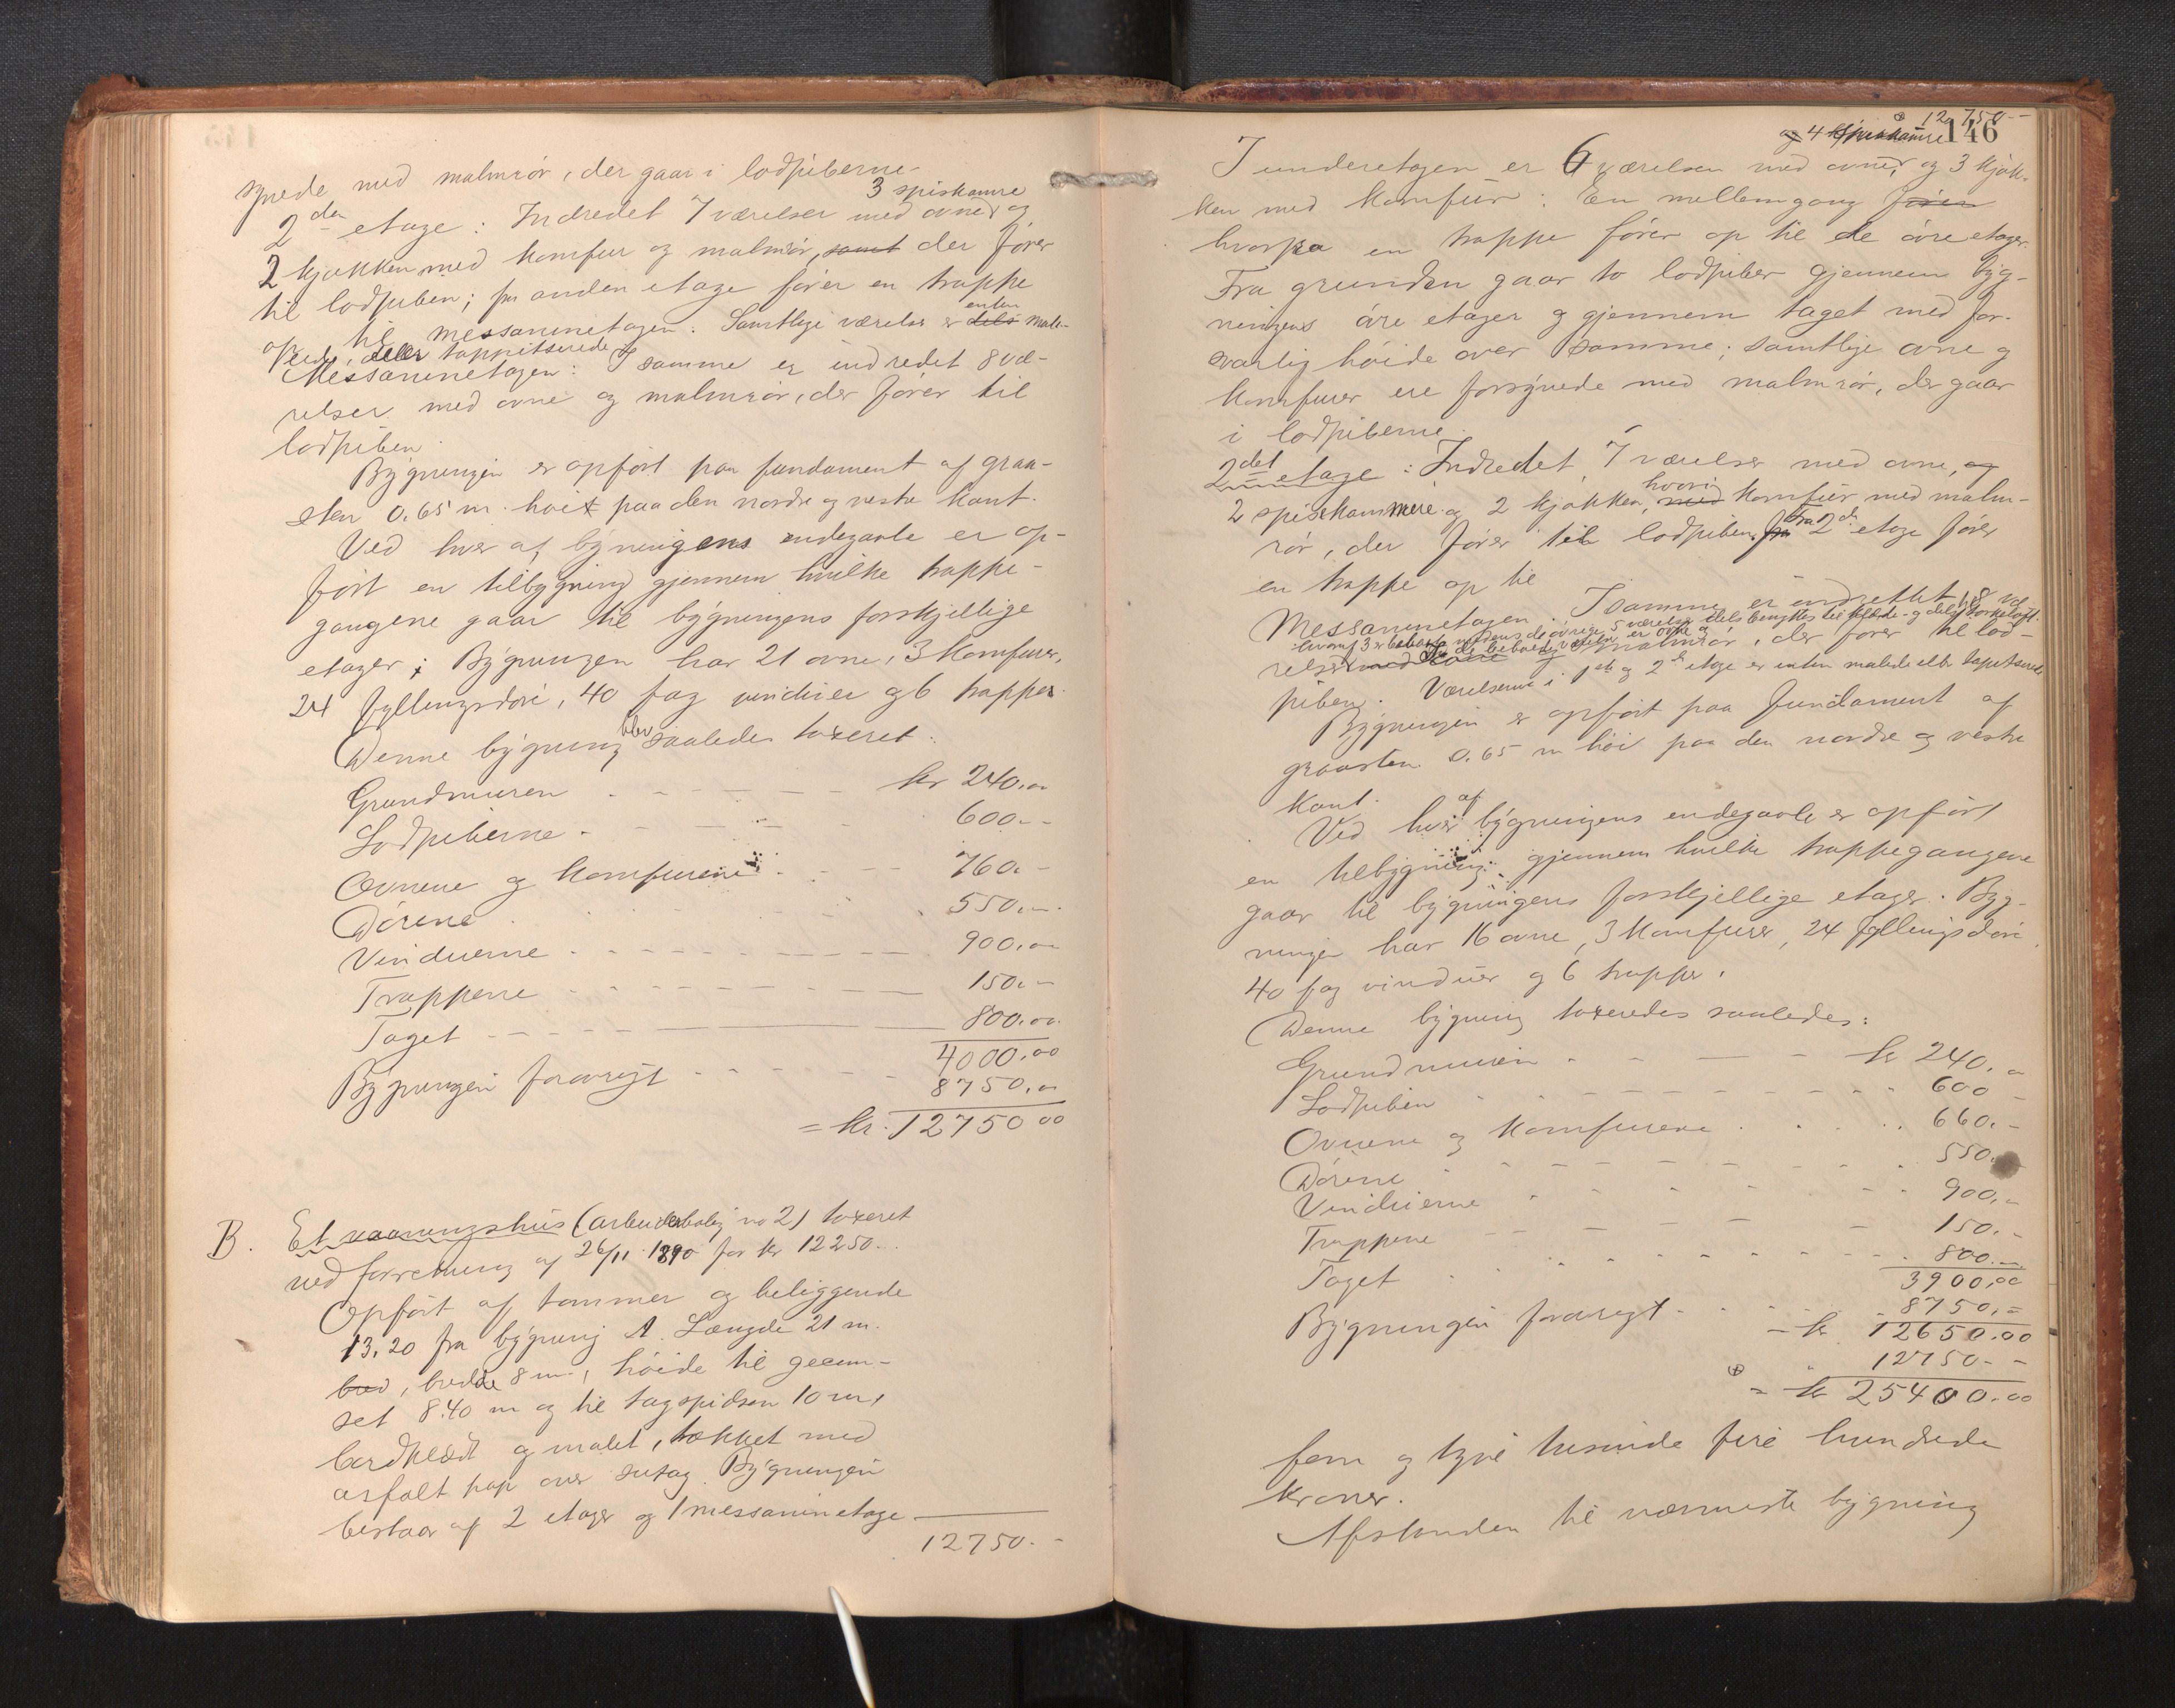 synede med malmrör, der gaar i lodpiberne.
3 spiskamre
2den etage: Indredet 7 værelser med ovne, og
2 kjøkken med komfur og malmrör, samt der förer
til lodpiben; fra anden etage förer en trappe
op til messaninetagen. Samtlige værelser er dels enten male-
rede, eller tappitserede
Messaninetagen: I samme er indredet 8 væ-
relser med ovne og malmrör, der förer til
lodpiben.
Bygningen er opfört paa fundament af graa-
sten 0.65 m. höit paa den nordre og vestre kant.
Ved hver af bygningens endegavle er op-
fört en tilbygning gjennem hvilke trappe-
gangene gaar til bygningens forskjellige
etager; Bygningen har 21 ovne, 3 komfurer,
24 fyllingsdöre, 40 fag vinduer og 6 trapper.
Denne bygning blev saaledes taxeret:
Grundmuren kr 240.00
Lodpiberne 600.-
Ovnene og komfurene 760.-
Dörene 550.-
Vinduerne 900.00
Trapperne 150.-
Taget 800.00
4000.00
Bygningen forøvrigt 8750.00
= kr. 12750 00
B. Et vaaningshus (arbeiderbolig no 2) taxeret
ved forretning af 26/11 1890 for kr 12250.-
Opfört af tømmer og beliggende
13.20 fra bygning A. Længde 21 m.
bred, bredde 8 m, höide til gesim-
set 8.40 m og til tagspidsen 10 m,
bordklædt og malet, tækket med
asfalt pap over sutag. Bygningen
bestaar af 2 etager og 1 messaninetage
12750.-
12750.-
146
og 4 spiskamre
I underetagen er 6 værelser med ovne, og 3 kjøk-
ken med komfur: En mellemgang förer
hvorfra en trappe förer op til de övre etager.
Fra grunden gaar to lodpiber gjennem byg-
ningens övre etager og gjennem taget med for-
svarlig höide over samme; samtlige ovne og
komfurer ere forsynede med malmrör, der gaar
i lodpiberne.
2det etage: Indredet 7 værelser med ovne, og
2 spiskammere og 2 kjøkken, med hvori komfur med malm-
rör, der förer til lodpiben. fra Fra 2den etage förer
en trappe op til
Messaninetagen: I samme er indrettet 8 væ-
hvoraf 3 er beboet medens de övrige 5 værelser dels benyttes til klæde- og dels törkeloft.
relser med ovne I de beboede værelser er ovne og malmrör, der förer til lod-
piben. Værelserne i 1ste og 2den etage er enten malede eller tapetserede
Bygningen er opfört paa fundament af
graasten 0.65 m höi paa den nordre og vestre
kant.
Ved hver af bygningens endegavle er opfört
en tilbygning gjennem hvilke trappegangene
gaar til bygningens forskjellige etager. Byg-
ningen har 16 ovne, 3 komfurer, 24 fyllingsdöre
40 fag vinduer og 6 trapper.
Denne bygning taxeredes saaledes:
Grundmuren kr 240.-
Lodpiben 600 -
Ovnene og komfurene 660.-
Dörene 550.-
Vinduerne 900.-
Trapperne 150.-
Taget 800.-
3900,00
Bygningen forøvrigt 8750.-
= kr 12650.00
" 12750.-
= kr 25400.00
fem og tyve tusinde fire hundrede
kroner.
Afstanden til nærmeste bygning